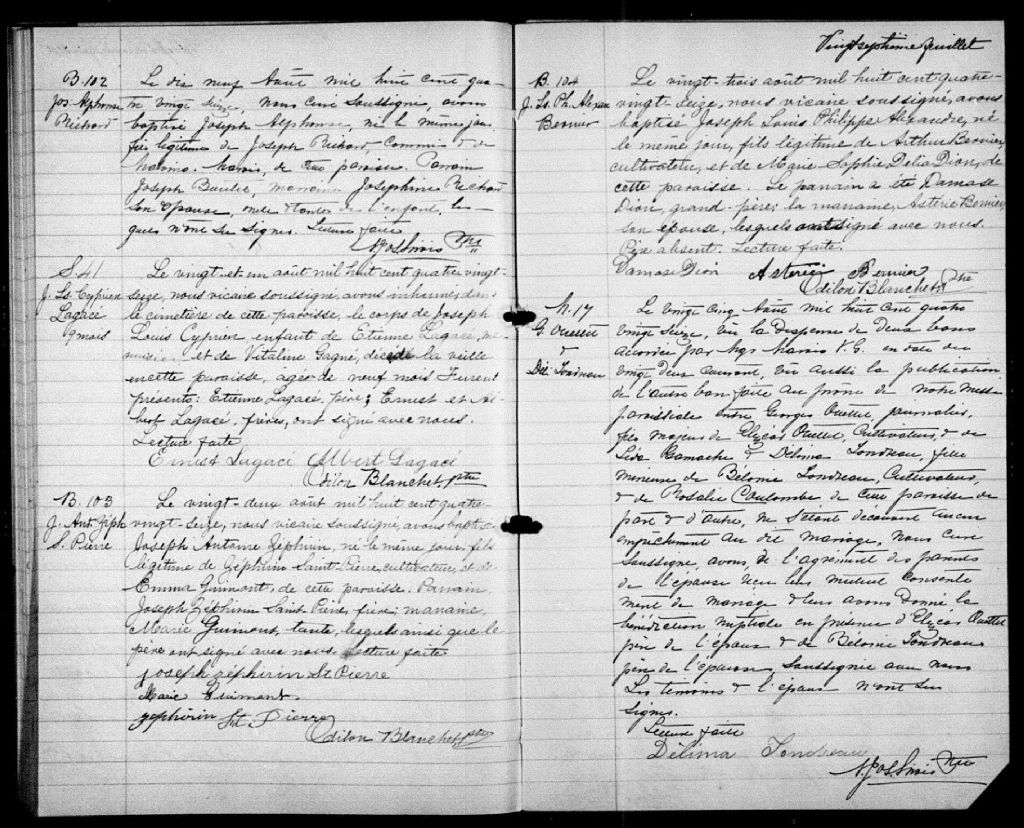 B. 102
Jos. Alphonse
Richard
Le dix neuf Août mil huit cent qua-
tre vingt seize, Nous Curé soussigné, avons
baptisé Joseph Alphonse, né le même jour
fils légitime de Joseph Richard, Commis & de
de cette paroisse. Parrain
Joseph Beulié, marraine Josephine Richard
son épouse, oncle & tante de l'enfant, les-
quels n'ont su signer. Lecture faite
N. Jos. Sirois Ptre
S. 41
J. Ls. Cyprien
Lagacé
9 mois
Le vingt-et-un août mil huit cent quatre vingt-
seize, nous vicaire soussigné, avons inhumé, dans
le cimetière de cette paroisse, le corps de Joseph
Louis Cyprien, enfant de Etienne Lagacé, me-
nuisier et de Vitaline Gagné, décédé la veille
en cette paroisse, agé de neuf mois. Furent
présents: Etienne Lagacé, père; Ernest et Al-
bert Lagacé, frères, ont signé avec nous.
Lecture faite
Ernest Lagacé Albert Lagacé
Odilon Blanchet, ptre
B. 103
J. Ant. Zéph
S. Pierre
Le vingt-deux août mil huit cent quatre-
vingt-seize, nous vicaire soussigné, avons baptisé
Joseph Antoine Zéphirin, né le même jour, fils
légitime de Zéphirin Saint-Pierre, cultivateur, et de
Emma Guimont, de cette paroisse. Parrain
Joseph Zéphirin Saint Pierre, frère; marraine,
Marie Guimont, tante, lesquels ainsi que le
père ont signé avec nous. Lecture faite
joseph zéphirin St Pierre
Marie Guimont
zephirin St Pierre
Odilon Blanchet ptre
Vingt septième feuillet
B. 104
J. Ls. Ph. Alexan
Bernier
Le vingt-trois août mil huit cent quatre-
vingt-seize, nous vicaire soussigné, avons
baptisé Joseph Louis Philippe Alexandre, né
le même jour, fils légitime de Arthur Bernier,
cultivateur, et de Marie Sophie Delia Dion, de
cette paroisse. Le parrain a été Damase
Dion, grand-père; la marraine, Astérie Bernier,
son épouse, lesquels ont signé avec nous.
Père absent. Lecture faite.
Damase Dion Asterie Bernier
Odilon Blanchet Ptre
M. 17
G. Ouellet
&
Dél. Tondreau
Le vingt cinq Août mil huit cent quatre
vingt seize, vu la Dispense de Deux bans
accordée par Mgr Marois V. G. en date du
vingt deux courant, vu aussi la publication
de l'autre ban faite au prône de notre messe
paroissiale entre Georges Ouellet, journalier,
fils majeur de Elzéar Ouellet, Cultivateur, & de
Léda Gamache & Délima Tondreau, fille
mineure de Bélonie Tondreau, Cultivateur,
& de Rosalie Coulombe de cette paroisse de
part & d'autre, ne s'étant découvert aucun
empêchement au dit mariage, Nous Curé
soussigné, avons, de l'agrément des parents
de l'épouse reçu leur mutuel consente
ment de mariage & leur avons Donné la
bénédiction nuptiale en présence d'Elzéar Ouellet
père de l'époux & de Bélonie Tondreau
père de l'épouse, soussignée avec nous
Les témoins & l'époux n'ont su
signer.
Lecture faite
Délima Tondreau
N. Jos. Sirois Ptre